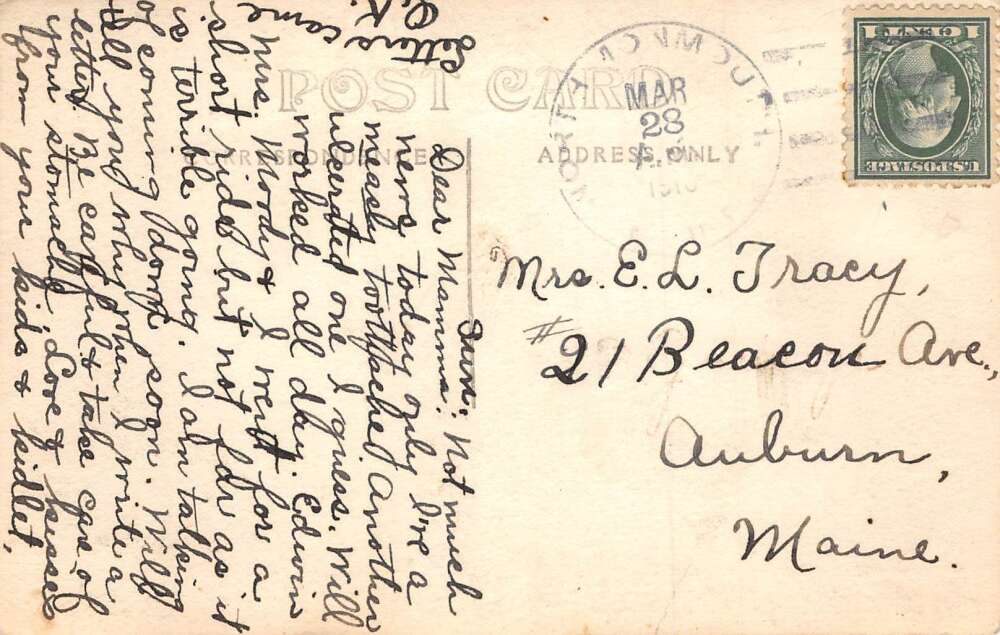 POST CARD
CORRESPONDENCE
ADDRESS ONLY
MAR
28
U.S. POSTAGE
1 CENT 1
Mrs. E. L. Tracy,
# 21 Beacon Ave.,
Auburn,
Maine.
Sun.
Dear Mamma: Not much
news today only I've a
toothache. Another
one I guess. Will
worked all day. Edwin
Mrs. Moody & I went for a
short ride but not far as it
is terrible going. I am talking
of coming down soon. Will
tell you why when I write a
letter. Be careful & take care of
your stomache. Love & kisses
from your kids & kidlet.
Letters came
O.K.